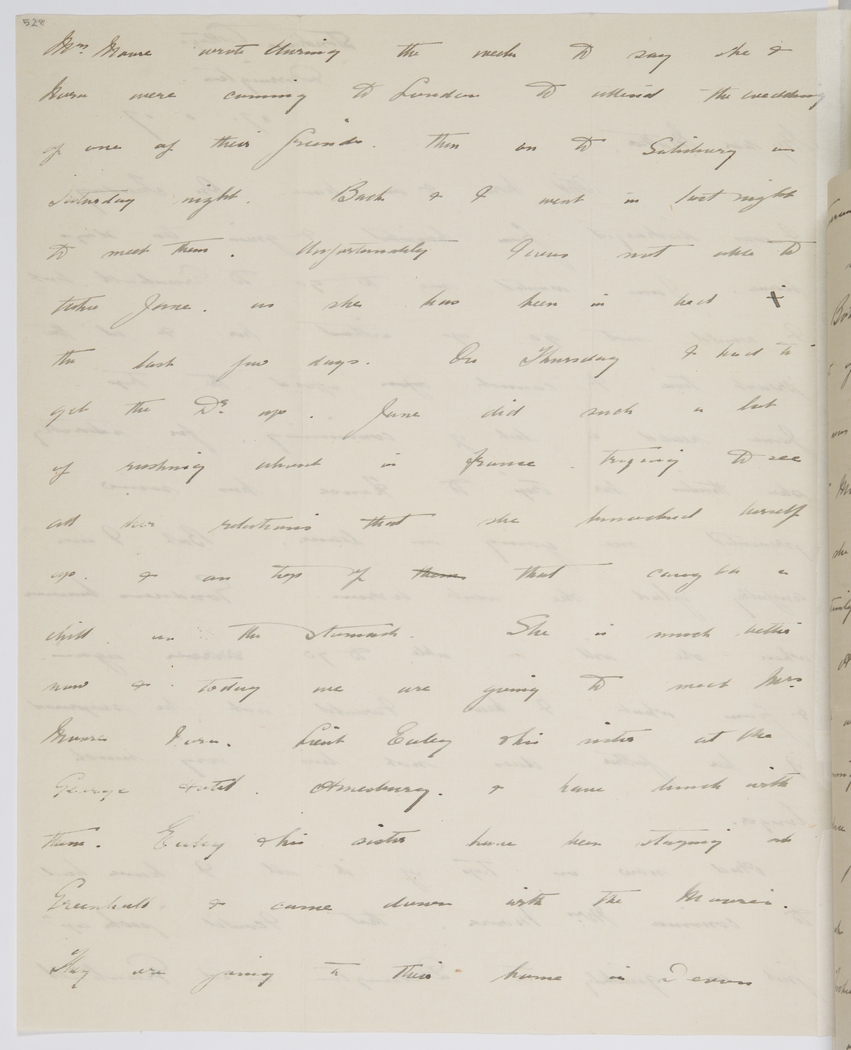 528
Mrs Moore wrote during the week to say she &
Nora were coming to London to attend the wedding
of one of their friends. then on to Salisbury on
Saturday night. Back & I went in last night
to meet them. Unfortunately I was not able to
take June. as she has been in bed
the last few days. On Thursday I had to
get the Dr. up. June did such a lot
of rushing about in France trying to see
all her relations that she knocked herself
up. & on top of them that caught a
chill on the stomach. She is much better
now & today we are going to meet Mrs
Moore Nora. Lieut Euley & his sister at the
George Hotel. Amesbury. & have lunch with
them. Euley & his sister have been staying at
Greenhalt & came down with the Moores.
They are going to their home in Devon